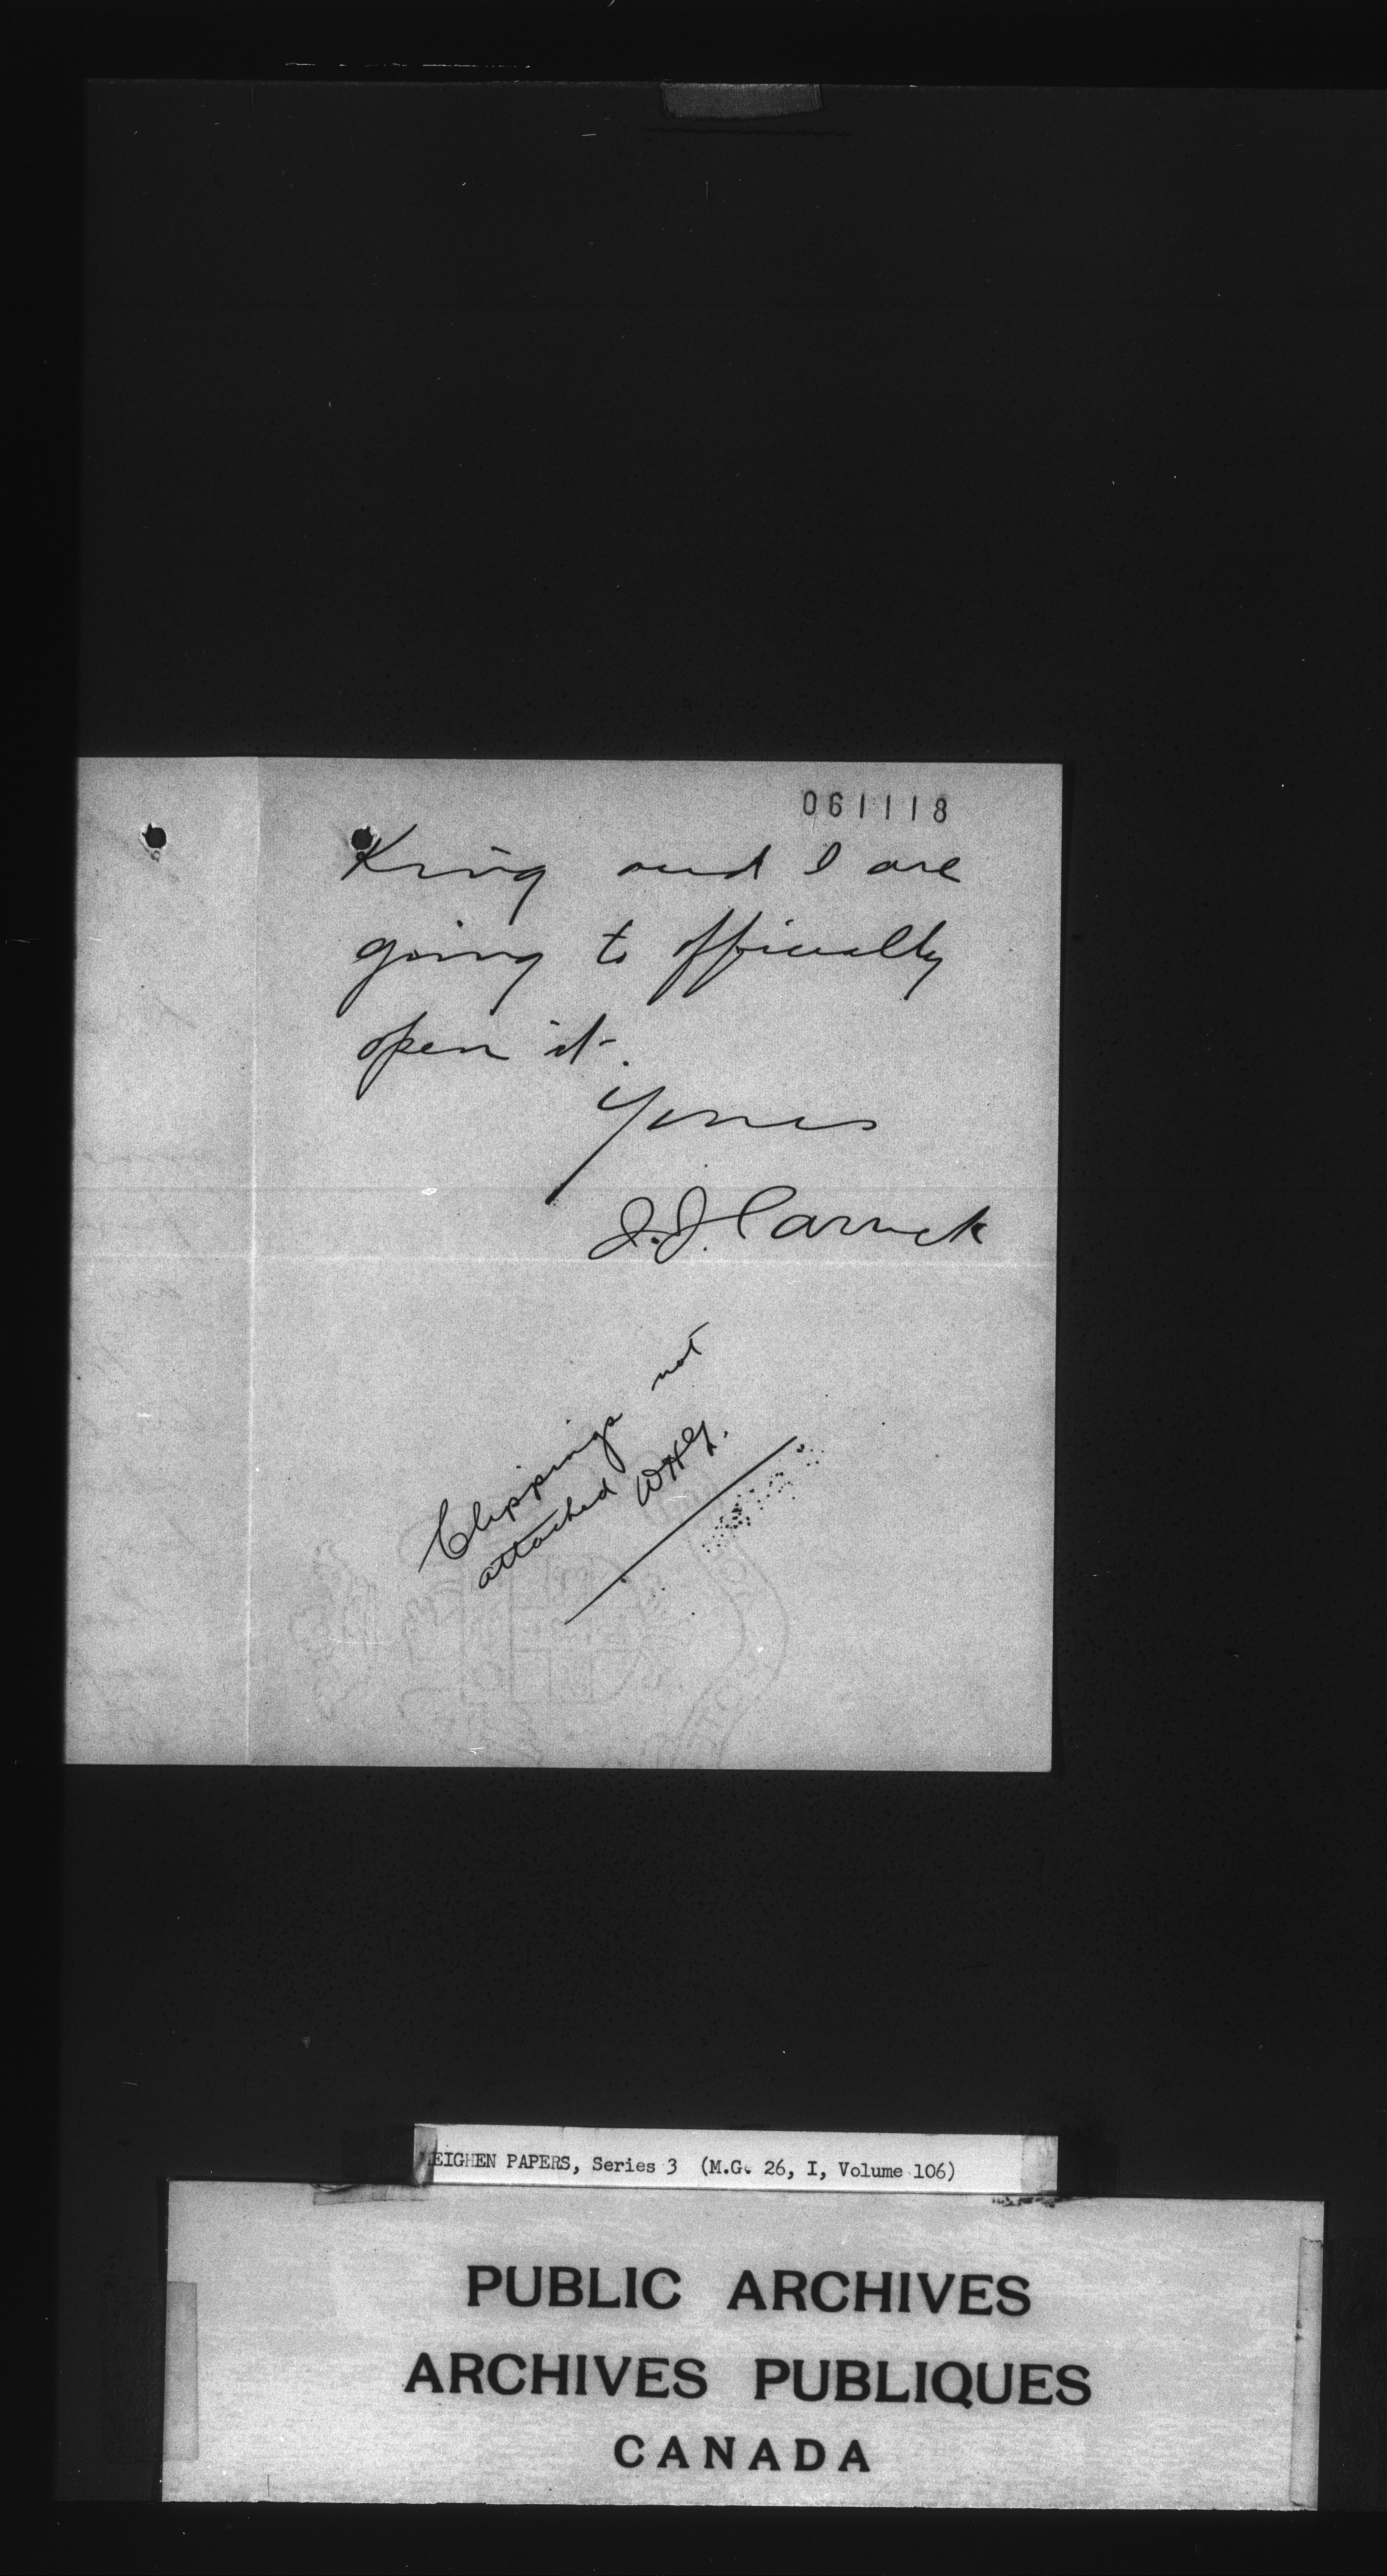 061118
King and I are
going to officially
open it.
Yours
J.J. Carrick
Clippings not
attached WHG.
EIGHEN PAPERS, Series 3 (M.G. 26, I, Volume 106)
PUBLIC ARCHIVES
ARCHIVES PUBLIQUES
CANADA